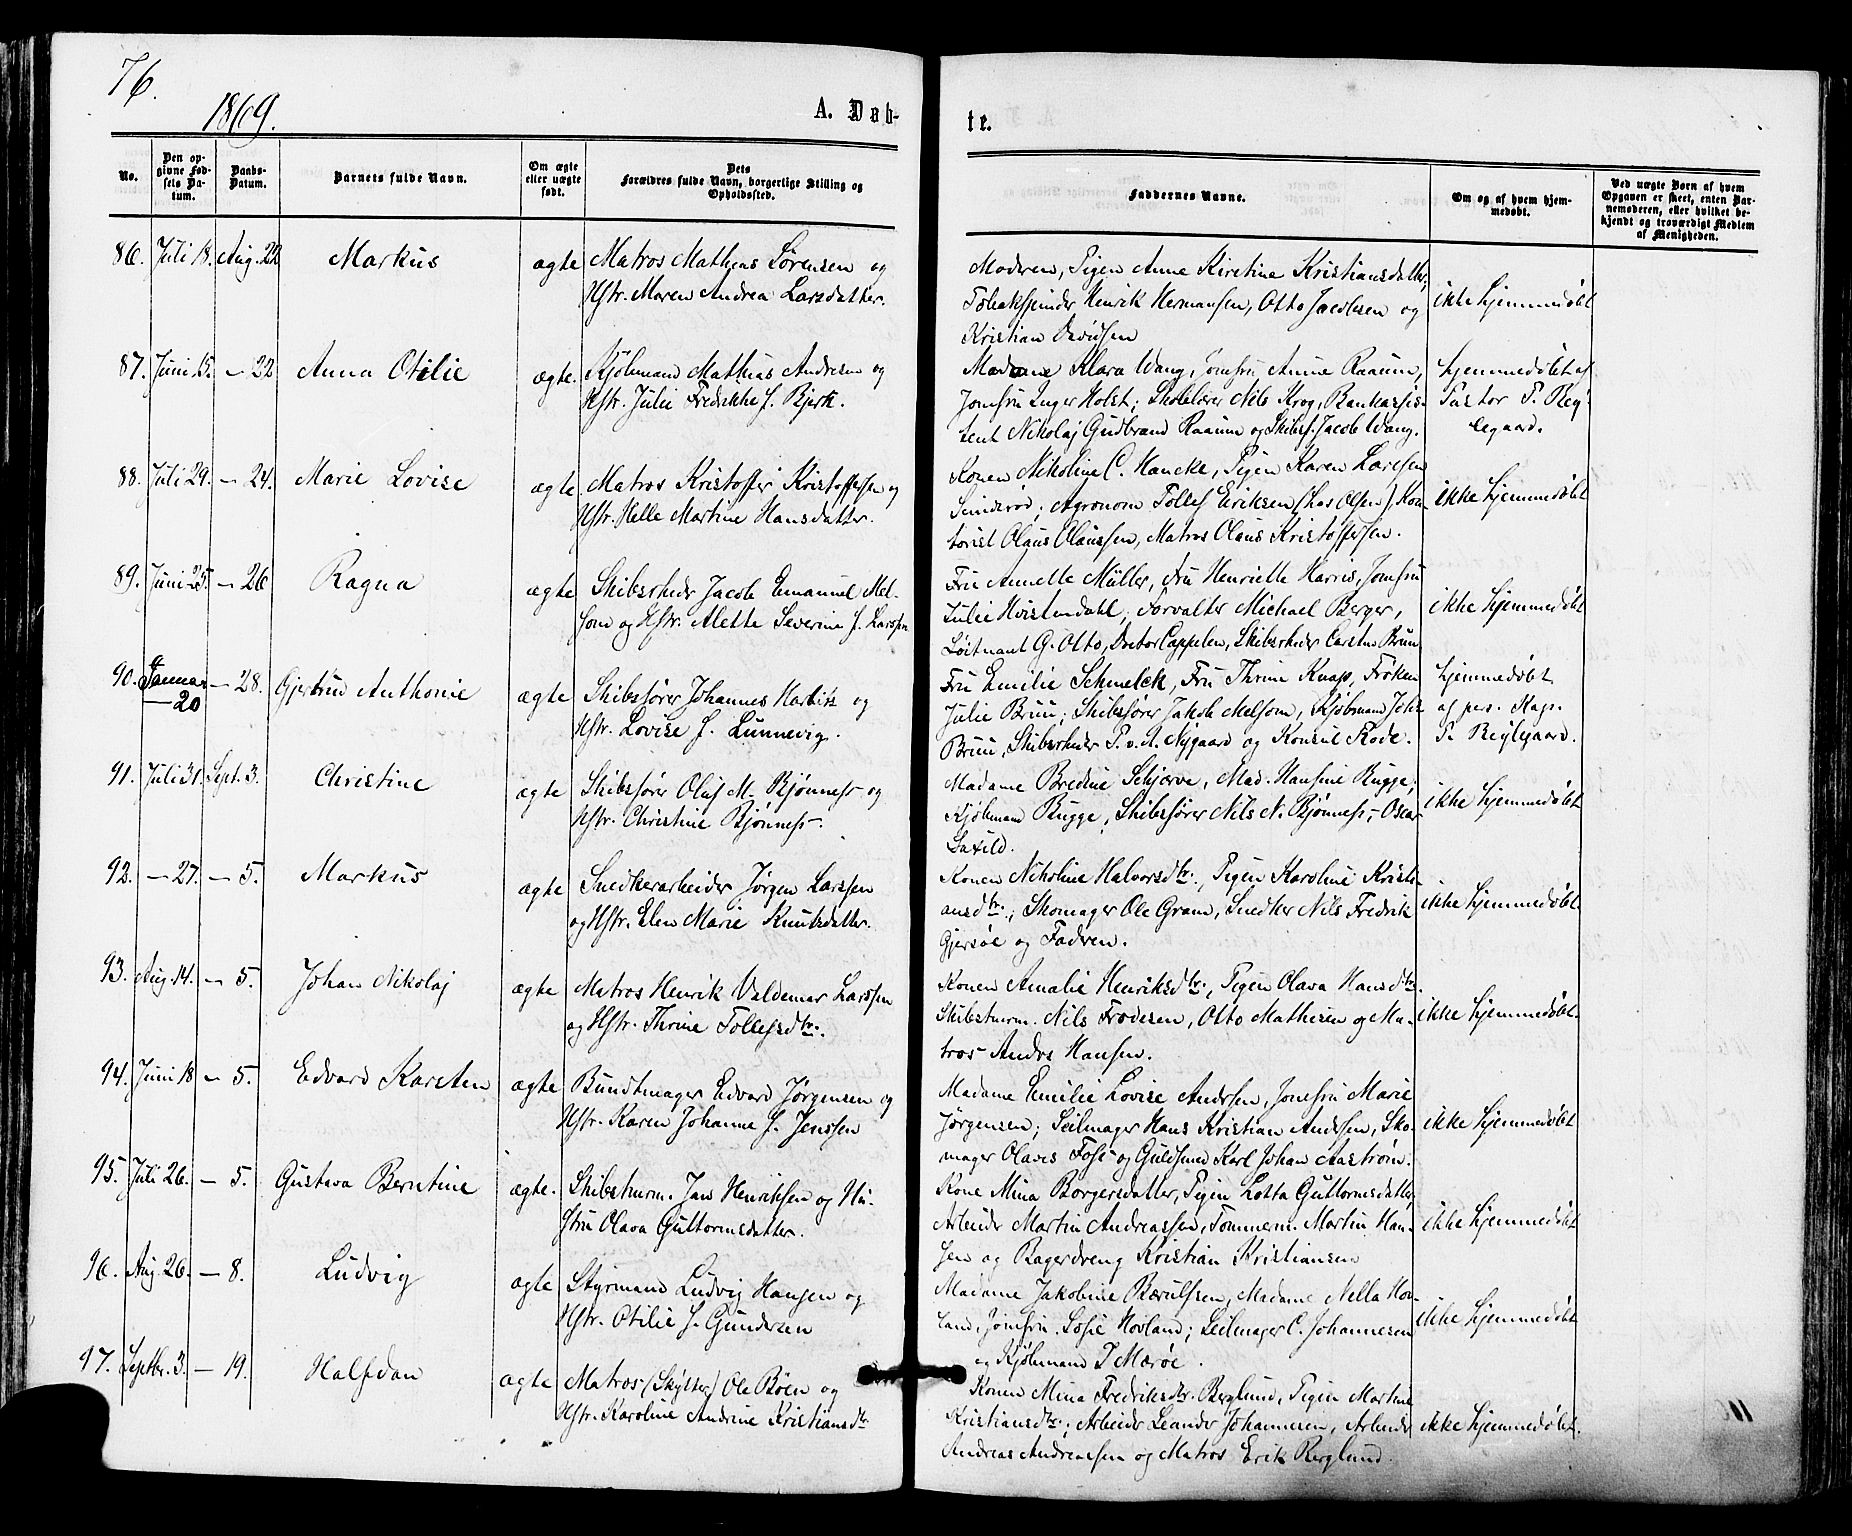 76.
1869.
A. Døb-
te.
No.
Den op-
givne Fød-
sels Da-
tum.
Daabs-
Datum.
Barnets fulde Navn.
Om ægte
eller uægte
født.
Dets
Forældres fulde Navn, borgerlige Stilling og
Opholdssted.
Faddernes Navne.
Om og af hvem hjem-
medøbt.
Ved uægte Børn af hvem
Opgaven er skeet, enten Bar-
nemoderen, eller hvilket be-
kjendt og troværdigt Medlem
af Menigheden.
86. Juli 18. Aug. 22 Markus ægte Matros Mathias Sørensen og
Hstr. Maren Andrea Larsdatter.
Moderen, Pigen Anne Kirstine Kristiansdatter,
Tobakspinder Henrik Hermansen, Otto Jacobsen og
Kristian Davidsen
ikke hjemmedøbt
87. Juni 15. — 22 Anna Otilie ægte. Kjøbmand Mathias Andresen og
Hstr. Julie Fredrikke f. Bjerk.
Madame Klara Wang, Jomfru Anne Raaum,
Jomfru Inger Holst; Skolelærer Nils Krog, Bankassis-
tent Nikolaj Gudbrand Raaum og Skibsf. Jacob Wang.
hjemmedøbt af
Pastor P. Reg-
legaard.
88. Juli 29. — 24. Marie Lovise ægte. Matros Kristoffer Kristoffersen og
Hstr. Helle Martine Hansdatter.
Konen Nikoline C. Hancke, Pigen Karen Larsen
Sunderød; Agronom Tollef Eriksen (hos Olsen), Kon-
torist Olaus Olaussen, Matros Olaus Kristoffersen.
ikke hjemmedøbt
89. Juni 25. — 26 Ragna ægte Skibsrheder Jacob Emanuel Mel-
som og Hstr. Alette Severine f. Larssen
Fru Annette Müller, Fru Henriette Harris, Jomfru
Julie Hvistendahl; Forvalter Michael Berger,
Løitnant G. Otto, Doctor Cappelen, Skibsrheder Carsten Bruun
ikke hjemmedøbt
90. Januar — 28. Gjertrud Anthonie ægte Skibsfører Johannes Harbitz og
— 20
Hstr. Lovise f. Lunnevig.
Fru Emilie Schmelck, Fru Thrine Knap, Frøken
Julie Bruu; Skibsfører Jakob Melsom, Kjøbmand Johs
Bruu, Skibsrheder P. v. A. Nygaard og Konsul Rode.
hjemmedøbt
af pers. Kap.
P. Reglegaard.
91. Juli 31. Sept. 3. Christine ægte Skibsfører Oluf M. Bjønness og
Hstr. Christine Bjønness.
Madame Bredine Schjerve, Mad. Hansine Bugge;
Kjøbmand Bugge, Skibsfører Nils N. Bjønness, Oscar
Saxild.
ikke hjemmedøbt
92. — 27. — 5. Markus ægte Snedkerarbeider Jørgen Larssen
og Hstr. Elen Marie Knutsdatter.
Konen Nikoline Halvorsdtr., Pigen Karoline Kristi-
ansdtr.; Skomager Ole Gram, Snedker Nils Fredrik
Gjersøe og Fadren.
ikke hjemmedøbt.
93. Aug. 14. — 5. Johan Nikolaj ægte Matros Henrik Valdemar Larssen
og Hstr. Thrine Tollefsdtr.
Konen Amalie Henriksdtr., Pigen Olava Hansdtr.
Skibstmrm. Nils Frodesen, Otto Mathisen og Ma-
tros Anders Hansen.
ikke hjemmedøbt.
94. Juni 18 — 5. Edvard Karsten ægte Bundtmager Edvard Jørgensen og
Hstr. Karen Johanne f. Jenssen
Madame Emilie Lovise Andersen, Jomfru Marie
Jørgensen; Seilmager Hans Kristian Andersen, Sko-
mager Olaves Foss og Guldsmed Karl Johan Aastrøm.
ikke hjemmedøbt
95. Juli 26. — 5. Gustava Berntine ægte. Skibstmrm. Jans Henriksen og Hu-
stru Olava Guttormsdatter.
Kone Mina Borgersdatter, Pigen Lotta Guttormsdatter,
Arbeider Martin Andreassen, Tømmerm. Martin Han-
sen og Bagerdreng Kristian Kristiansen
ikke hjemmedøbt
96. Aug. 26. — 8. Ludvig ægte Styrmand Ludvig Hansen og
Hstr. Otilie f. Gundersen
Madame Jakobine Bærulfsen, Madame Nella Hov-
land, Jomfru Sofie Hovland; Seilmager C. Johannesen
og Kjøbmand T Marøe.
ikke hjemmedøbt
97. Septbr. 3. — 19. Halfdan ægte Matros (Skytter) Ole Bøen og
Hstr. Karoline Andrine Kristiansdtr
Konen Mina Fredriksdtr. Berglund, Pigen Martine
Kristiansdtr.; Arbeider Leander Johannesen, Arbeider
Andreas Andreassen og Matros Erik Berglund.
ikke hjemmedøbt.